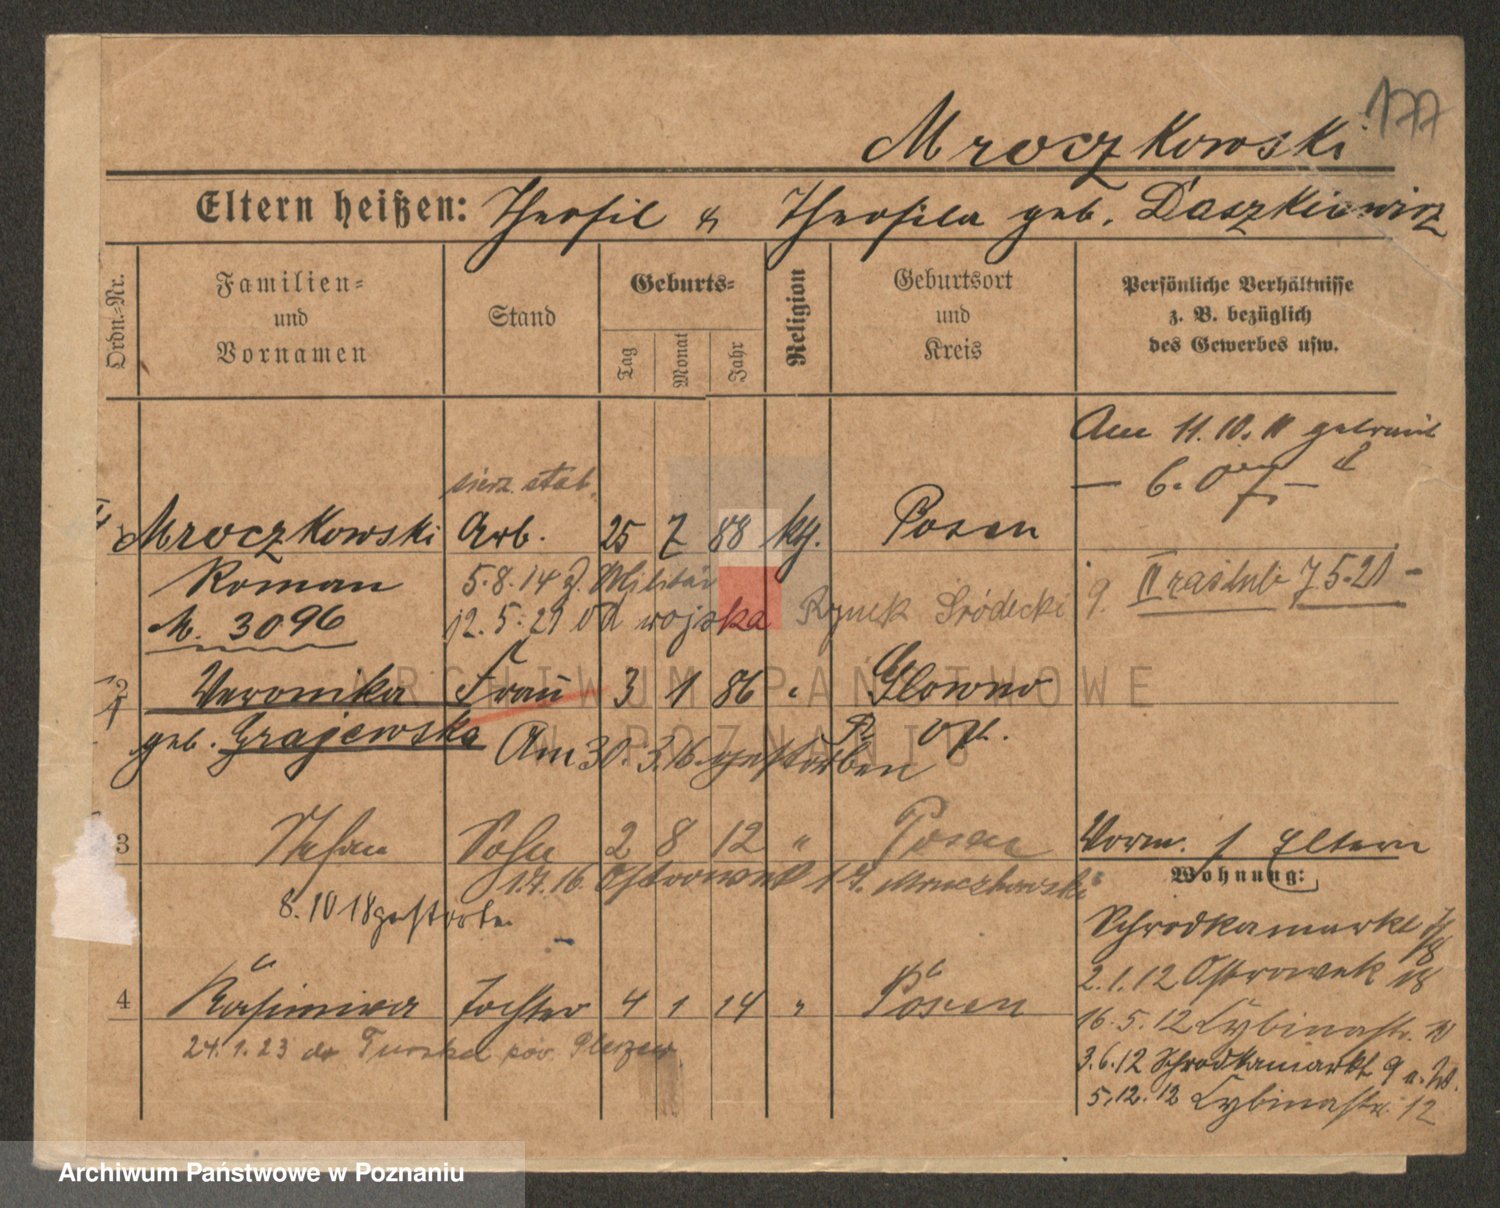 177
Mroczkowski
Eltern heißen: Theofil & Theofila geb. Daszkiewicz
Ordn.-Nr.
Familien- und Vornamen
Stand
Geburts-
Tag
Monat
Jahr
Religion
Geburtsort und Kreis
Persönliche Verhältnisse z. B. bezüglich des Gewerbes usw.
Am 11.10.11 getraut
sierż. stab.
1 Mroczkowski Arb. 25 7 88 kth. Posen
Roman 5.8.14 z. Militär
12.5.21 Od wojska Rynek Śródecki 9. II raz ślub 7.5.21
M. 3096
2 Veronika Frau 3 1 86 " Glowno
geb. Grajewska Am 30.3.16. gestorben
3 Stefan Sohn 2 8 12 " Posen
Vorm. s. Eltern
1.7.16. Ostrowek 17. Mruczkowski
Wohnung:
8.10 18 gestorben
Schrodkamarkt
2.1.12 Ostrowek 18
4 Kasimira Tochter 4 1 14 " Posen
16.5.12 Cybinastr.
24.1.23 do Turska pow. Pleszew
3.6.12 Schrodkamarkt 9
5.12.12 Cybinastr. 12
ARCHIWUM PAŃSTWOWE
W POZNANIU
Archiwum Państwowe w Poznaniu